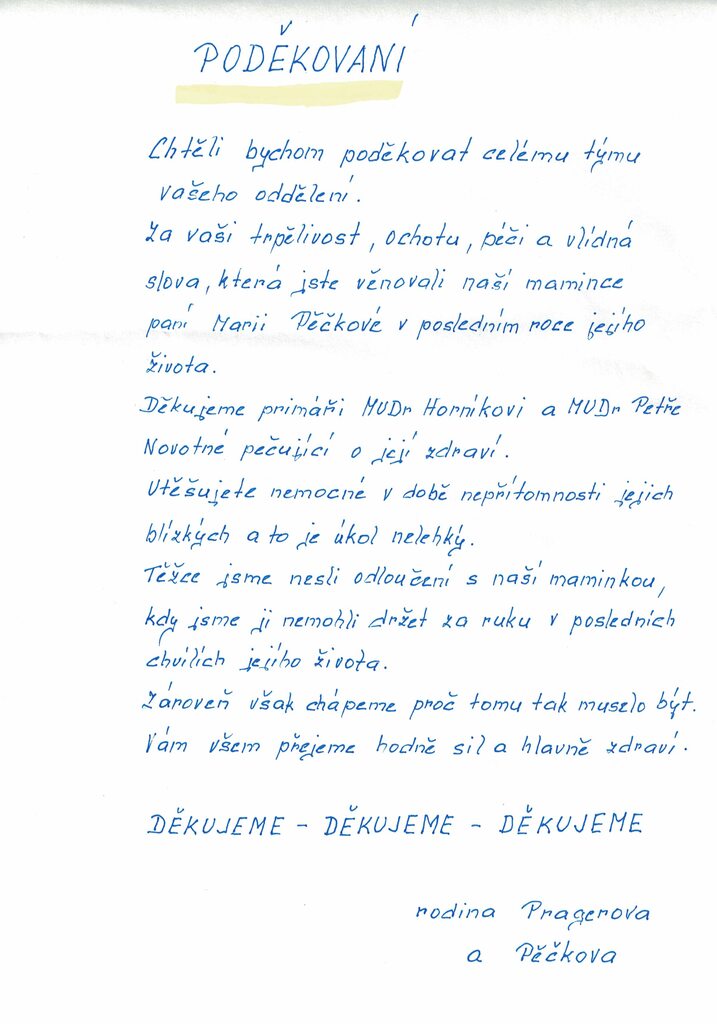 PODĚKOVANÍ
Chtěli bychom poděkovat celému týmu
vašeho oddělení.
Za vaši trpělivost, ochotu, péči a vlídná
slova, která jste věnovali naší mamince
paní Marii Pěčkové v posledním roce jejího
života.
Děkujeme primáři MUDr Horníkovi a MUDr Petře
Novotné pečující o její zdraví.
Utěšujete nemocné v době nepřítomnosti jejich
blízkých a to je úkol nelehký.
Těžce jsme nesli odloučení s naší maminkou,
kdy jsme ji nemohli držet za ruku v posledních
chvílích jejího života.
Zároveň však chápeme proč tomu tak muselo být.
Vám všem přejeme hodně sil a hlavně zdraví.
DĚKUJEME - DĚKUJEME - DĚKUJEME
rodina Pragerova
a Pěčkova